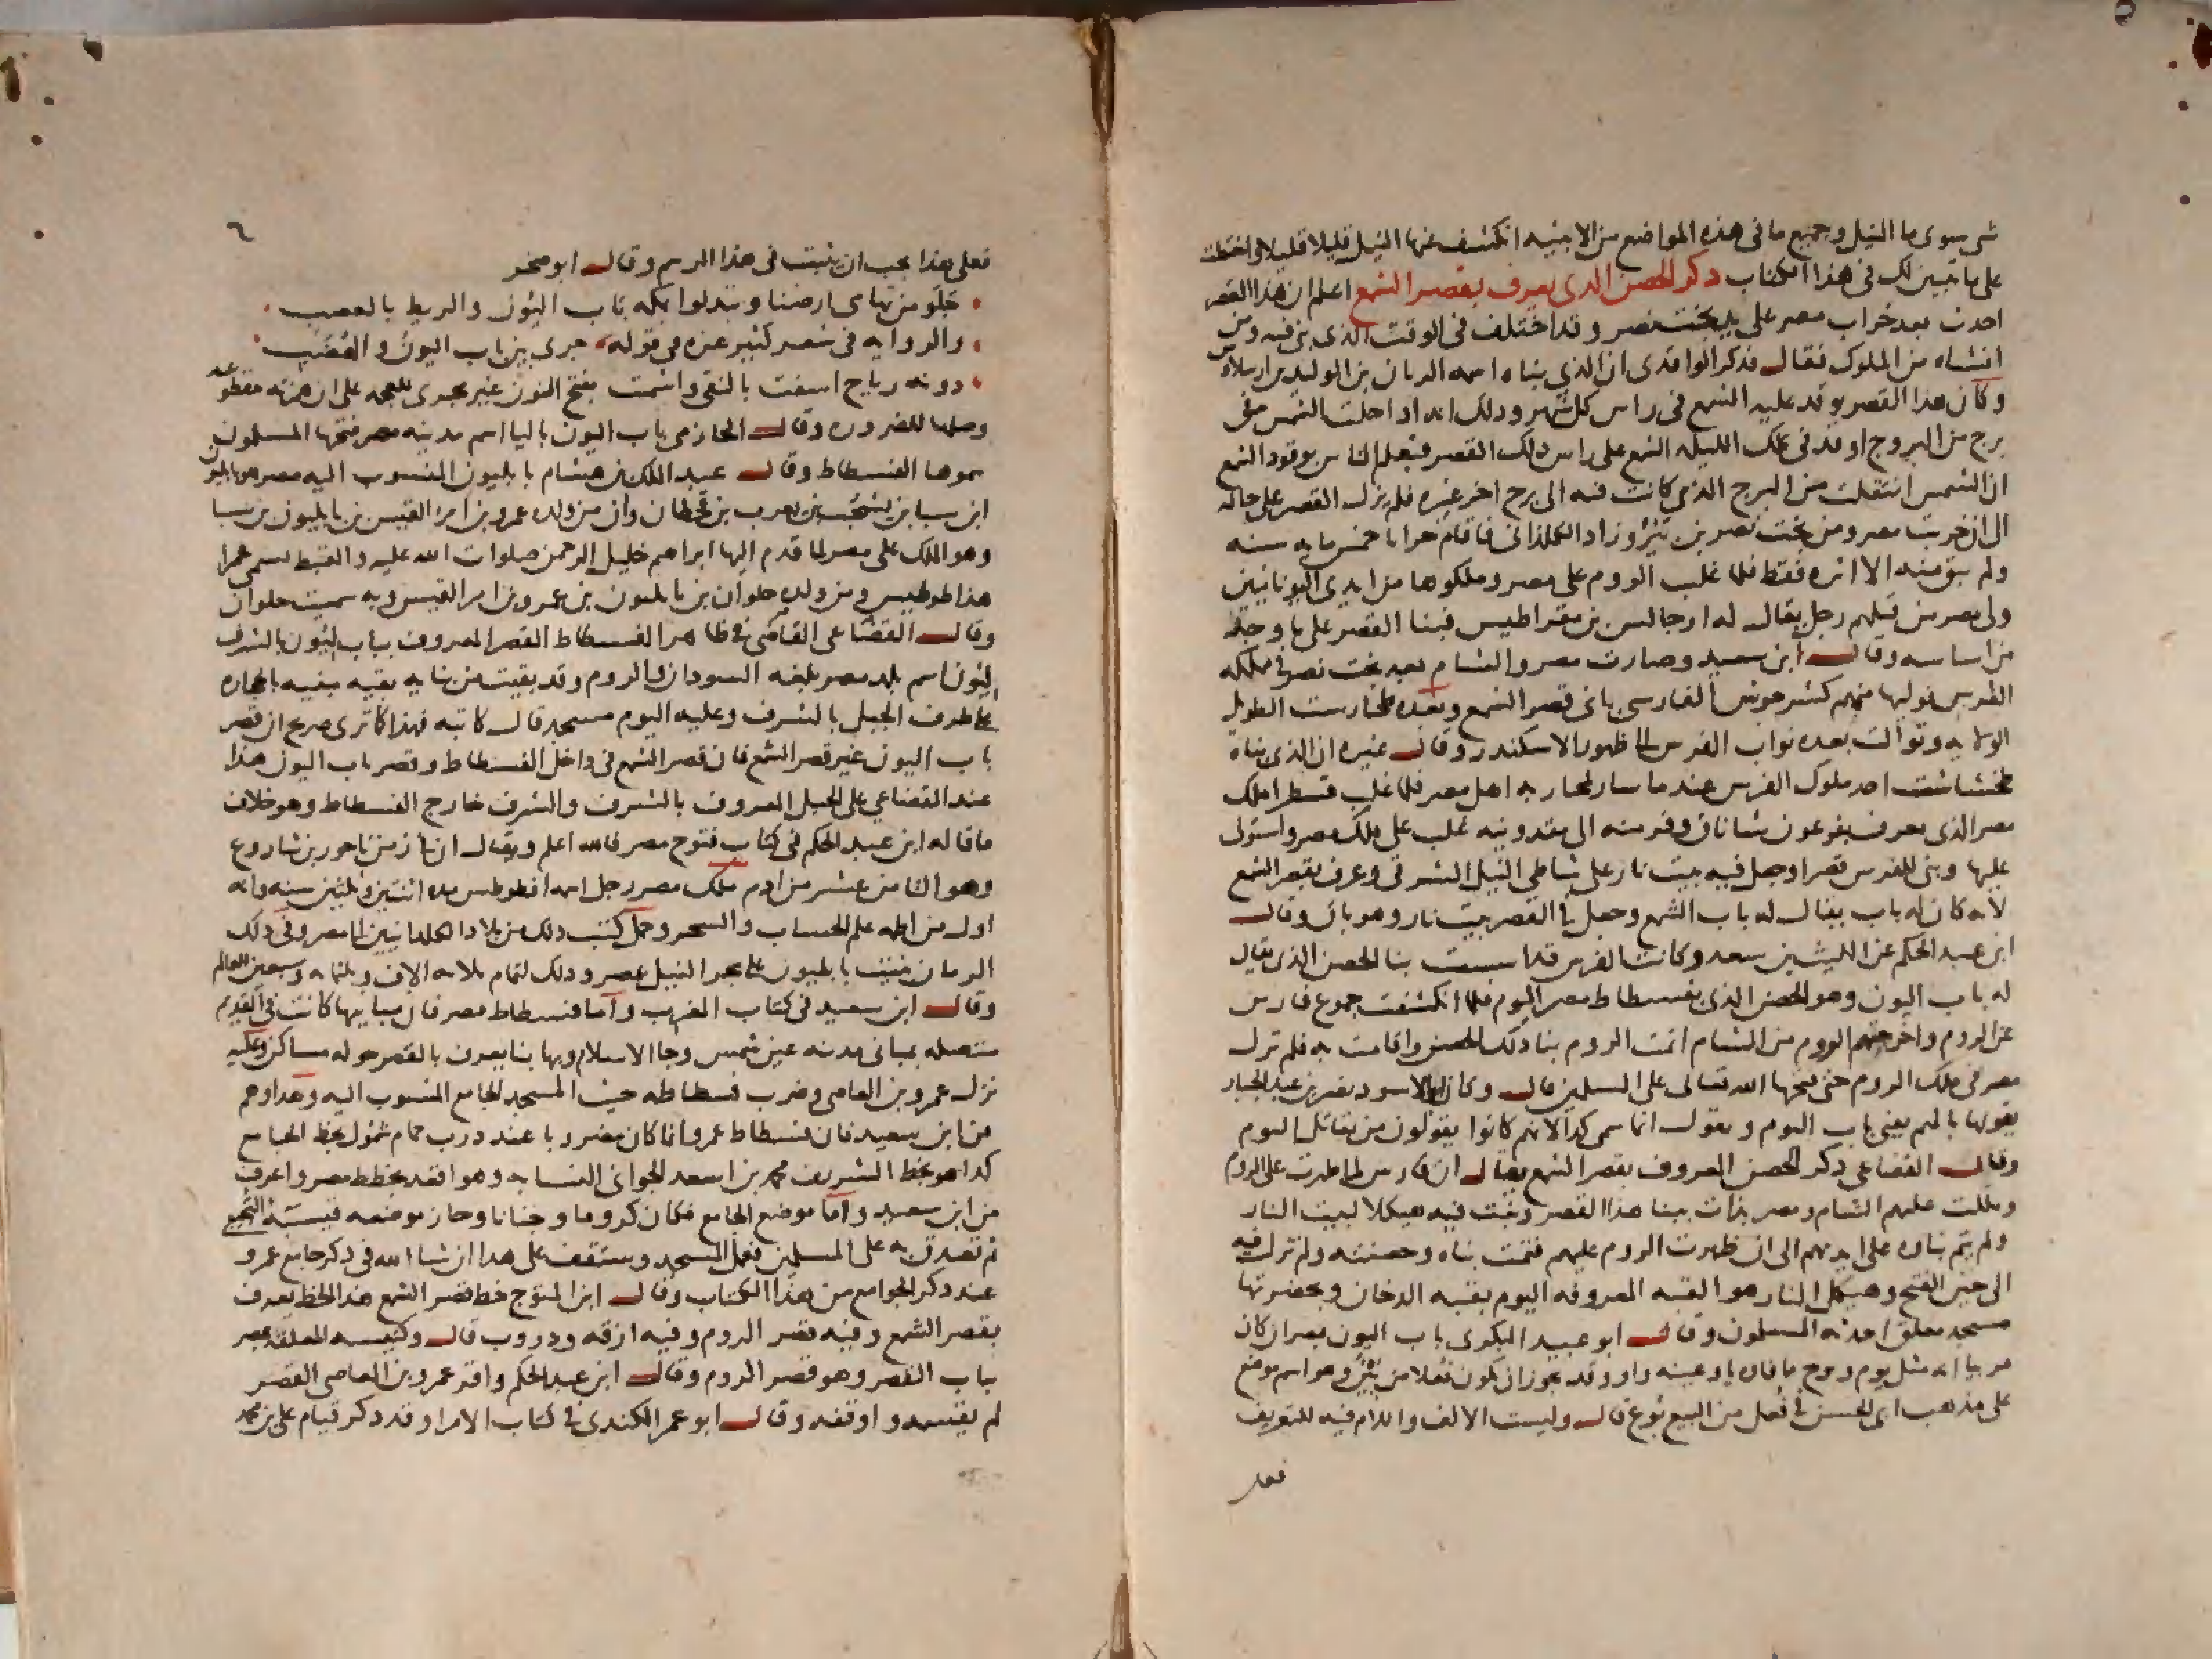 شى سوى ما النيل وجميع ما فى هذه المواضع من الابنيه انكشف عنها النيل قليلا قليلا واختطت
على ما تبين لك فى هذا الكتاب ذكر الحصن الدى يعرف بقصر الشمع اعلم ان هذا القصر
احدث بعد خراب مصر على يد بخت نصر وقد اختلف فى الوقت الذى بنى فيه ومن
انشاه من الملوك فقال فذكر الواقدى ان الذى بناه اسمه الريان بن الوليد بن ارسلاوس
وكان هذا القصر يوقد عليه الشمع فى راس كل شهر ودلك انه ادا حلت الشمس فى
برج من البروج اوقد فى تلك الليله الشمع على راس دلك القصر فيعلم الناس بوقود الشمع
ان الشمس انتقلت من البرج الذى كانت فيه الى برج اخر غيره فلم يزل القصر على حاله
الى ان خربت مصر ومن بخت نصر بن نيروزاد الكلدانى فاقام خرابا خمس مايه سنه
ولم يبق منه الا اثره فقط فلما غلب الروم على مصر وملكوها من ايدى اليونانيين
ولى مصر من قبلهم رجل يقال له ارجاليس بن مقراطيس فبنا القصر على ما وجد
من اساسه وقال ابن سعيد وصارت مصر والشام بعد بخت نصر فى مملكه
الفرس فوليها منهم كشرجوش الفارسى بانى قصر الشمع وبعده طخارست الطويل
الولايه وتوالت بعده نواب الفرس الى ظهور الاسكندر وقال غيره ان الذى بناه
طخشاشت احد ملوك الفرس عندما سار لمحاربه اهل مصر فلما غلب قسطرا ملك
مصر الذى يعرف بفرعون شاناق وفر منه الى مقدونيه غلب على ملك مصر واستولى
عليها وبنى للفرس قصرا وجعل فيه بيت نار على شاطى النيل الشرقى وعرف بقصر الشمع
لانه كان له باب يقال له باب الشمع وجعل فى القصر بيت نار وهو باق وقال
ابن عبد الحكم عن الليث بن سعد وكانت الفرس قد اسست بنا الحصن الذى يقال
له باب اليون وهو الحصن الذى بفسطاط مصر اليوم فلما انكشفت جموع فارس
عن الروم واخرجتهم الروم من الشام اتمت الروم بنا دلك الحصن واقامت به فلم تزل
مصر فى ملك الروم حتى فتحها الله تعالى على المسلمين قال وكان ابو الاسود نصر بن عبد الجبار
يقولها بالميم يعنى باب اليوم ويقول انما سمى كدا لانهم كانوا يقولون من يقاتل اليوم
وقال القضاعى ذكر الحصن المعروف بقصر الشمع يقال ان فارس لما ظهرت على الروم
وملكت عليهم الشام ومصر بدات ببنا هذا القصر وبنت فيه هيكلا لبيت النار
ولم يتم بناوه على ايديهم الى ان ظهرت الروم عليهم فتممت بناه وحصنته ولم تزل فيه
الى حين الفتح وهيكل النار هو القبه المعروفه اليوم بقبه الدخان وبحضرتها
مسجد معلق احدثه المسلمون وقال ابو عبيد البكرى باب اليون بمصر ان كان
عربيا انه مثل يوم ويوح ما فاوه يا وعينه واو وقد يجوز ان يكون فعلا من يين وهو اسم موضع
على مذهب ابى الحسن فى فعل من البيع بوع قال وليست الالف واللام فيه للتعريف
فعلى
٦
فعلى هذا يجب ان يثبت فى هذا الرسم وقال ابو صخر
جلو من تهامى ارضنا وتبدلوا بمكه باب اليون والريط بالعصب
والروايه فى شعر كثير عزه فى قوله جرى بين باب اليون والهضب
دونه رياح اسفت بالنقى واشمت بفتح النون غير مجرى للعجمه على ان همزته مقطوعه
وصلها للضروره وقال الحازمى باب اليون باليا اسم مدينه مصر فتحها المسلمون
سموها الفسطاط وقال عبد الملك بن هشام بابليون المنسوب اليه مصر هو بابليون
ابن سبا بن يشجب بن يعرب بن قحطان وان من ولده عمرو بن امر القيس بن بابليون بن سبا
وهو الملك على مصر لما قدم اليها ابراهيم خليل الرحمن صلوات الله عليه والقبط تسمى عمرا
هذا طوطيس ومن ولده حلوان بن بابليون بن عمرو بن امر القيس وبه سميت حلوان
وقال القضاعى القاضى فى ظاهر الفسطاط القصر المعروف بباب ليون بالشرف
ليون اسم بلد مصر بلغه السودان والروم وقد بقيت من بنايه بقيه مبنيه بالحجاره
على طرف الجبل بالشرف وعليه اليوم مسجد قال كاتبه فهذا كما ترى صريح ان قصر
باب اليون غير قصر الشمع فان قصر الشمع فى داخل الفسطاط وقصر باب اليون هذا
عند القضاعى على الجبل المعروف بالشرف والشرف خارج الفسطاط وهو خلاف
ما قاله ابن عبد الحكم فى كتاب فتوح مصر فالله اعلم ويقال ان فى زمن ناحور بن شاروع
وهو الثامن عشر من ادم ملك مصر رجل اسمه افطوطس مده اثنتين وثلثين سنه وانه
اول من اظهر علم الحساب والسحر وحمل كتب دلك من بلاد الكلدانيين الى مصر وفى دلك
الزمان بنيت بابليون على بحر النيل بمصر ودلك لتمام ثلاثه الاف وثلثمايه وسبعين للعالم
وقال ابن سعيد فى كتاب المغرب واما فسطاط مصر فان مبانيها كانت فى القديم
متصله بمبانى مدينه عين شمس وجا الاسلام وبها بنا يعرف بالقصر حوله مساكن وعليه
نزل عمرو بن العاصى وضرب فسطاطه حيث المسجد الجامع المنسوب اليه وهذا وهم
من ابن سعيد فان فسطاط عمرو انما كان مضروبا عند درب حمام شمول بخط الجامع
كدا هو بخط الشريف محمد بن اسعد الجوانى النسابه وهو اقعد بخطط مصر واعرف
من ابن سعيد واما موضع الجامع فكان كروما وجنانا وحاز موضعه قيسبه التجيبى
ثم تصدق به على المسلمين فعمل المسجد وستقف على هدا ان شا الله فى ذكر جامع عمرو
عند ذكر الجوامع من هذا الكتاب وقال ابن المتوج خط قصر الشمع هذا الخط يعرف
بقصر الشمع وفيه قصر الروم وفيه ازقه ودروب قال وكنيسه المعلقه بمصر
بباب القصر وهو قصر الروم وقال ابن عبد الحكم واقر عمرو بن العاصى القصر
لم يقسمه واوقفه وقال ابو عمر الكندى فى كتاب الامرا وقد ذكر قيام على بن محمد